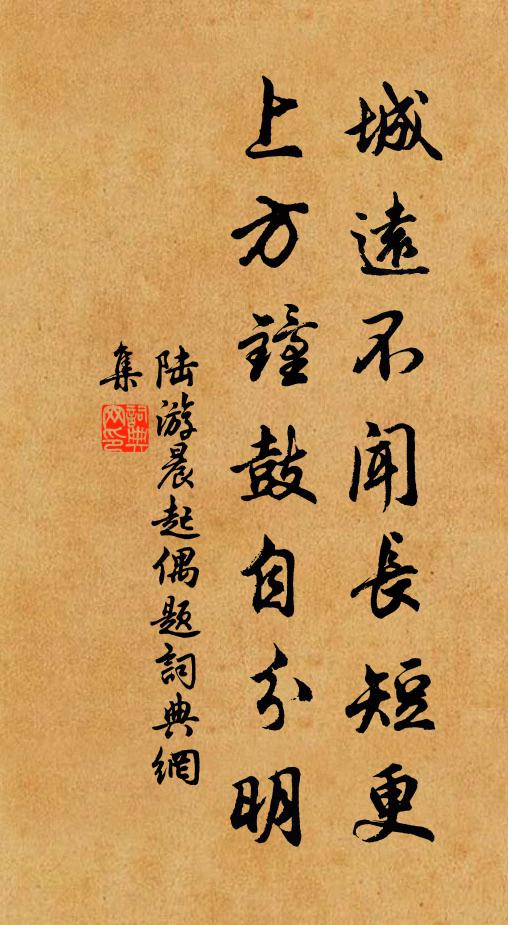 城遠不聞長短更
上方鐘鼓自分明
陆游晨起偶題詞典網
集
詞典
网印